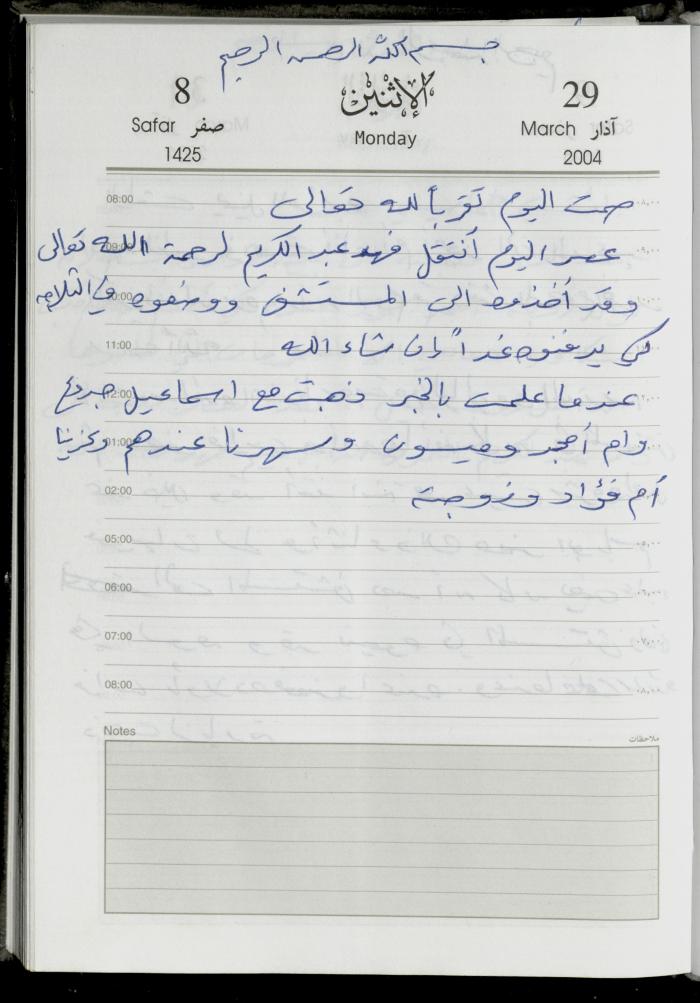 بسم الله الرحمن الرحيم
8 الإثنين 29
Safar صفر Monday March آذار
1425 2004
08:00 صمت اليوم تقرباً لله تعالى
09:00 عصر اليوم أنتقل فهد عبد الكريم لرحمة الله تعالى
10:00 وقد أخذوه الى المستشفى ووضعوه في الثلاجه
11:00 كي يدفنوه غداً إن شاء الله
12:00 عندما علمت بالخبر ذهبت مع اسماعيل جدوع
01:00 وام أمجد وميسون وسهرنا عندهم وعزينا
02:00 أم فؤاد وزوجته
05:00
06:00
07:00
08:00
Notes ملاحظات